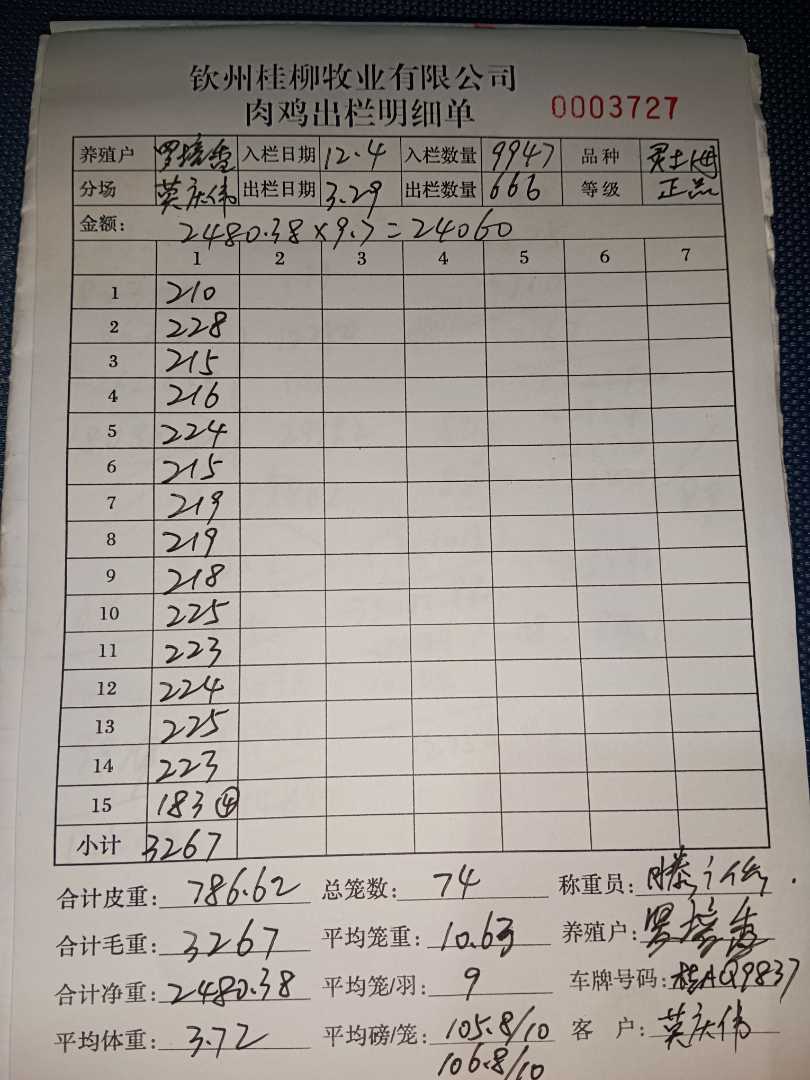 钦州桂柳牧业有限公司
肉鸡出栏明细单 0003727
养殖户 罗培香 入栏日期 12.4 入栏数量 9947 品种
分场 莫庆伟 出栏日期 3.29 出栏数量 666 等级 正品
金额: 2480.38×9.7=24060
1 2 3 4 5 6 7
1 210
2 228
3 215
4 216
5 224
6 215
7 219
8 219
9 218
10 225
11 223
12 224
13 225
14 223
15 183④
小计 3267
合计皮重: 786.62 总笼数: 74 称重员:
合计毛重: 3267 平均笼重: 10.63 养殖户: 罗培香
合计净重: 2480.38 平均笼/羽: 9 车牌号码: 桂AQ9837
平均体重: 3.72 平均磅/笼: 105.8/10 客 户: 莫庆伟
106.8/10